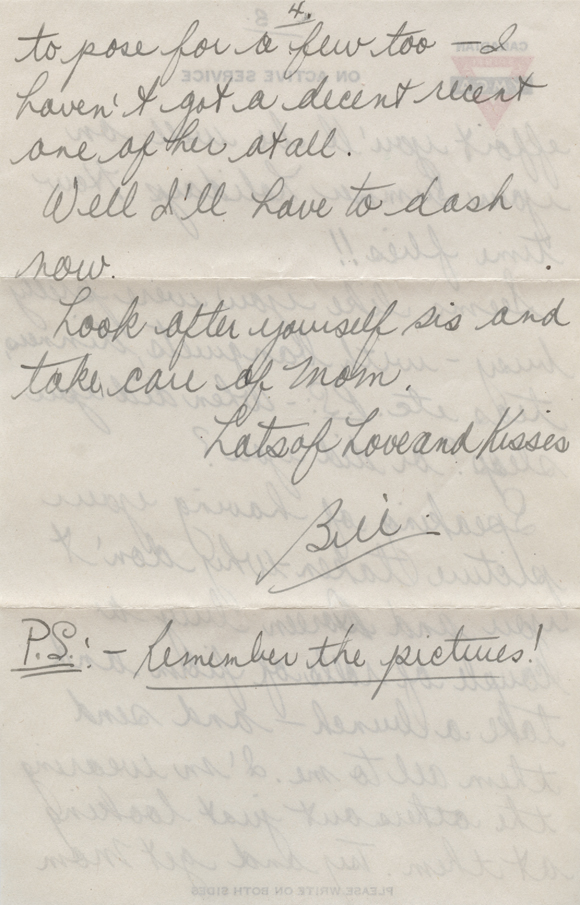 4.
to pose for a few too – I
haven't got a decent recent
one of her at all.
Well I'll have to dash
now.
Look after yourself sis and
take care of Mom.
Lots of Love and Kisses
Bill.
P.S.: – Remember the pictures!